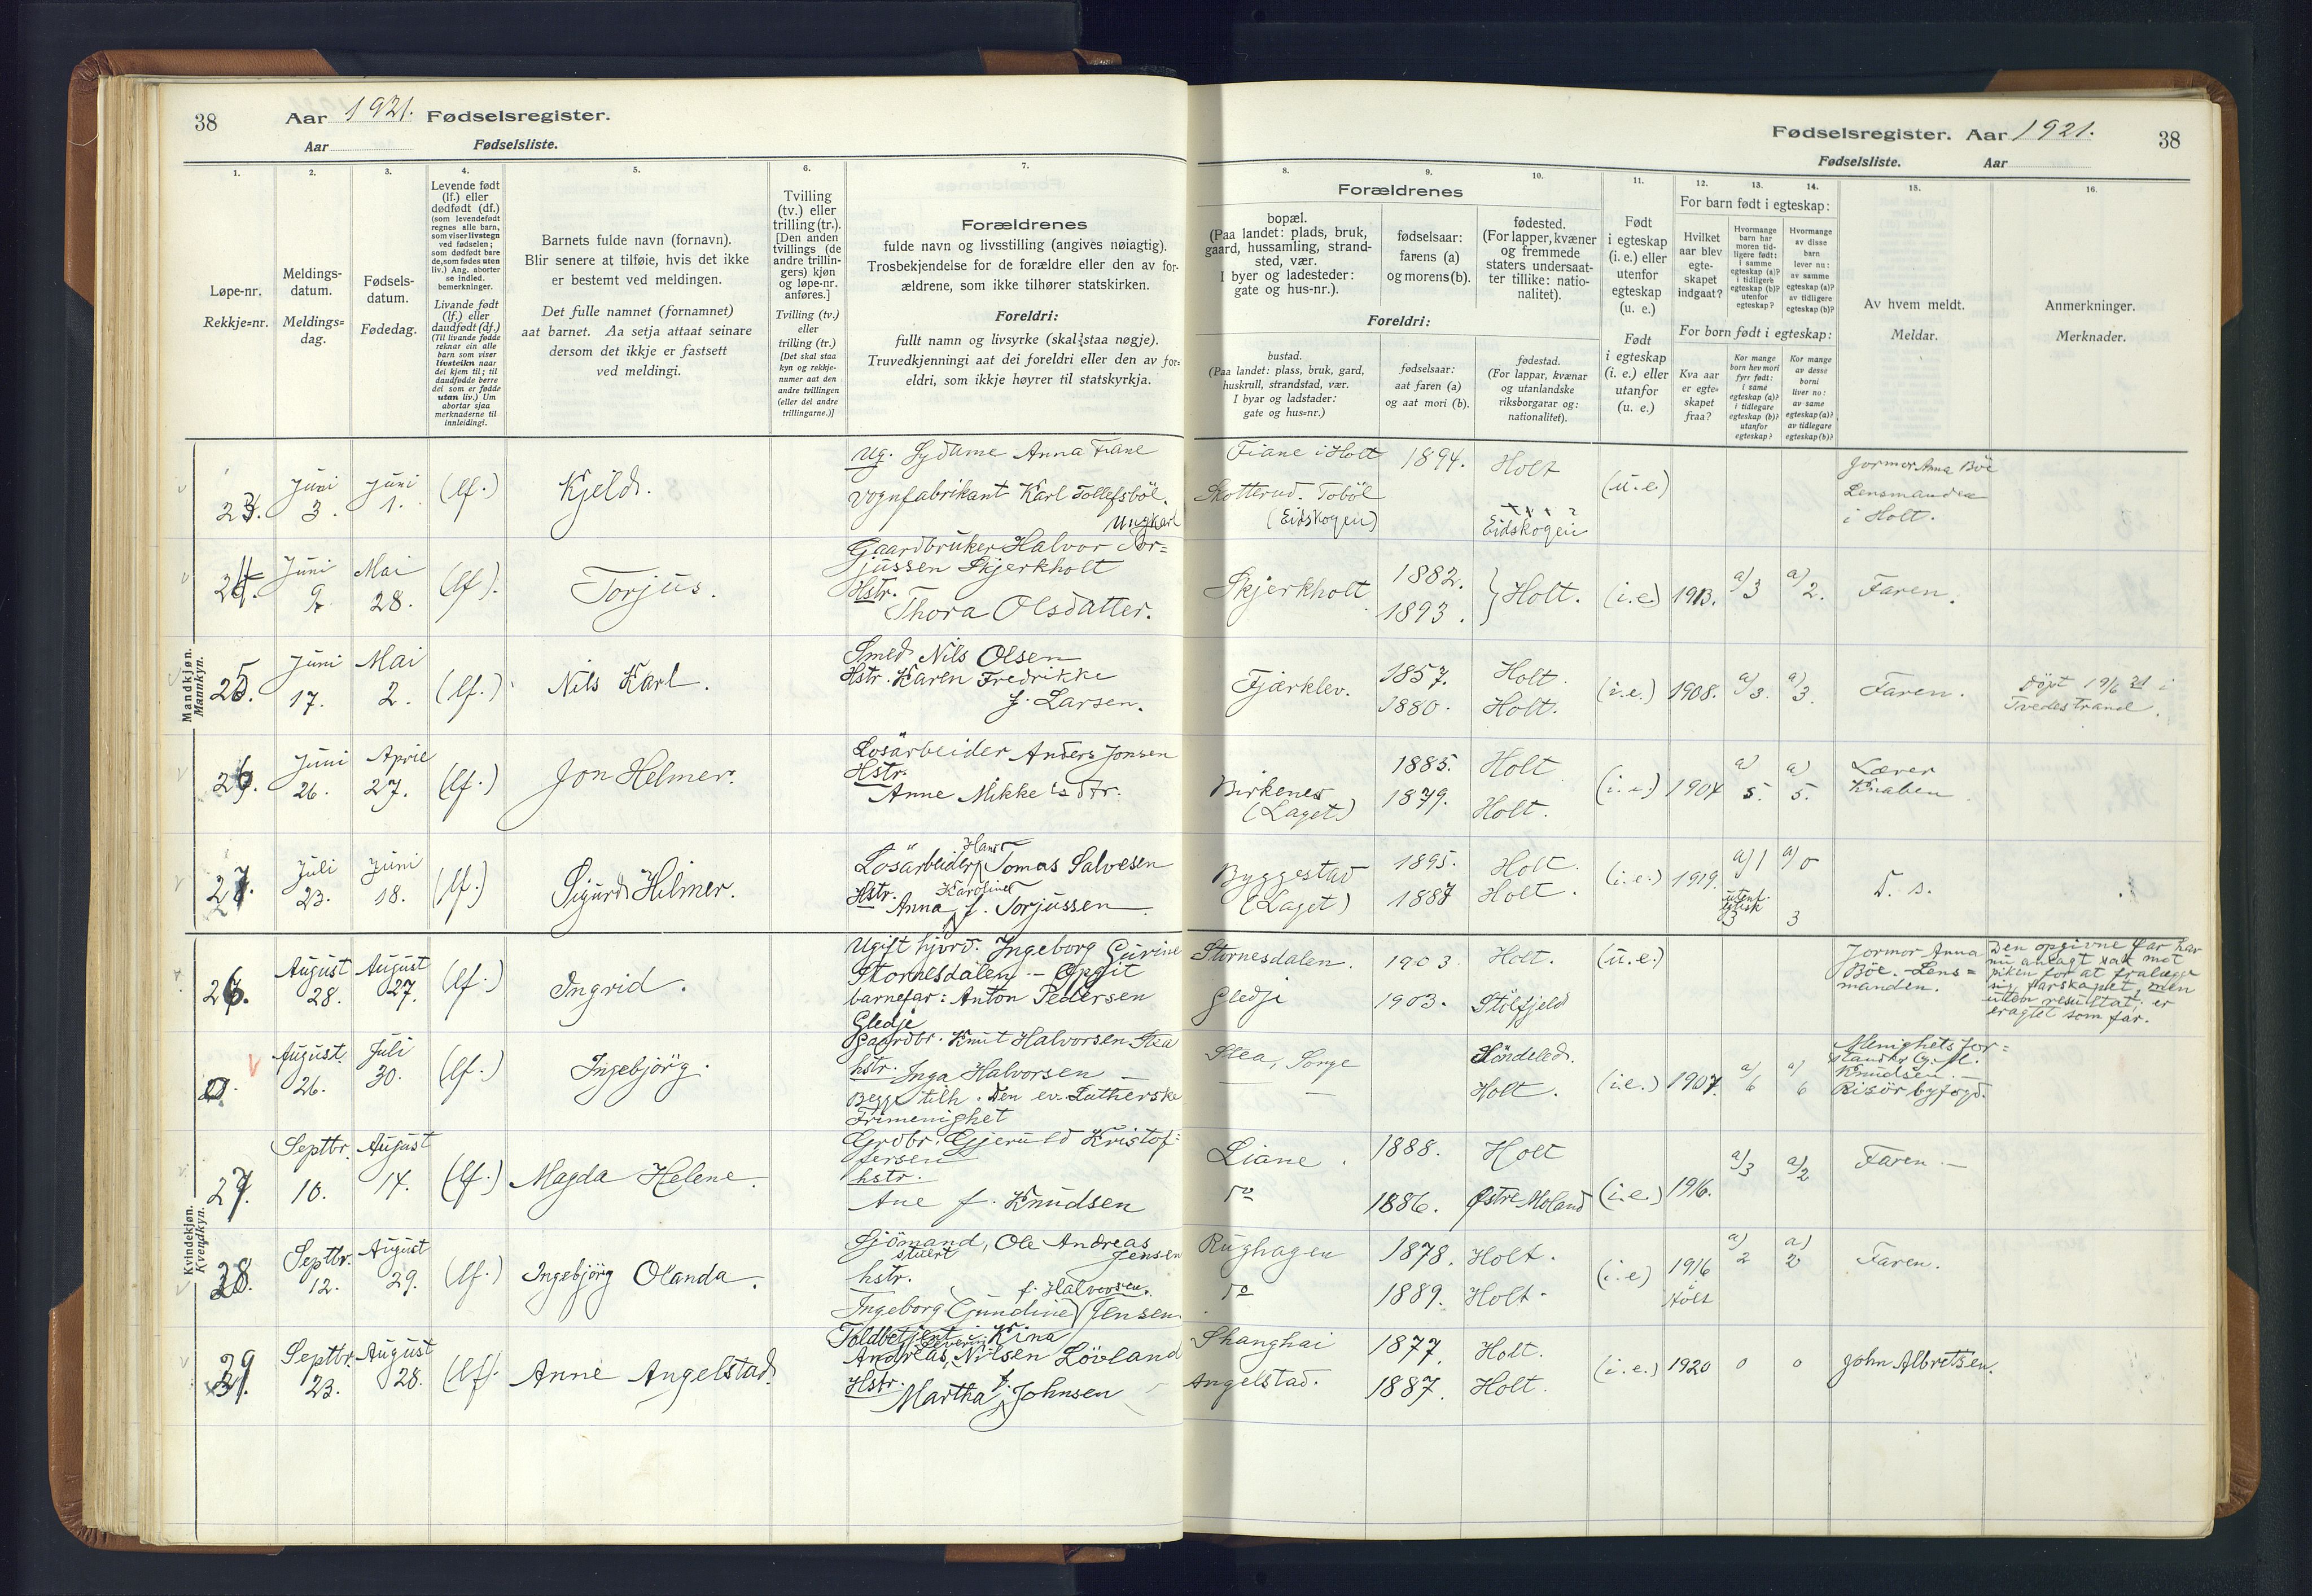 38
Aar 1921. Fødselsregister.
Aar Fødselsliste.
Fødselsregister. Aar 1921.
Fødselsliste. Aar
38
1.
Løpe-nr.
Rekkje=nr.
2.
Meldings-
datum.
Meldings=
dag.
3.
Fødsels-
datum.
Fødedag.
4.
Levende født
(lf.) eller
dødfødt (df.)
(som levendefødt
regnes alle barn,
som viser livstegn
ved fødselen;
som dødfødt bare
de, som fødes uten
liv.) Ang. aborter
se indled.
bemerkninger.
Livande født
(lf.) eller
daudfødt (df.)
(Til livande fødde
reknar ein alle
barn som viser
livsteikn naar
dei kjem til; til
daudfødde berre
dei som er fødde
utan liv.) Um
abortar sjaa
merknaderne til
innleidingi.
5.
Barnets fulde navn (fornavn).
Blir senere at tilføie, hvis det ikke
er bestemt ved meldingen.
Det fulle namnet (fornamnet)
aat barnet. Aa setja attaat seinare
dersom det ikkje er fastsett
ved meldingi.
6.
Tvilling
(tv.) eller
trilling (tr.).
[Den anden
tvillings (de
andre trillin-
gers) kjøn
og løpe-nr.
anføres.]
Tvilling (tv.)
eller
trilling (tr.)
[Det skal staa
kyn og rekkje-
numer aat den
andre tvillingen
(eller dei andre
trillingarne.)]
7.
Forældrenes
fulde navn og livsstilling (angives nøiagtig).
Trosbekjendelse for de forældre eller den av for-
ældrene, som ikke tilhører statskirken.
Foreldri:
fullt namn og livsyrke (skal staa nøgje).
Truvedkjenningi aat dei foreldri eller den av for=
eldri, som ikkje høyrer til statskyrkja.
8.
Forældrenes
bopæl.
(Paa landet: plads, bruk,
gaard, hussamling, strand-
sted, vær.
I byer og ladesteder:
gate og hus-nr.).
Foreldri:
bustad.
(Paa landet: plass, bruk, gard,
huskrull, strandstad, vær.
I byar og ladstader:
gate og hus=nr.)
9.
fødselsaar:
farens (a)
og morens (b).
fødselsaar:
aat faren (a)
og aat mori (b).
10.
fødested.
(For lapper, kvæner
og fremmede
staters undersaat-
ter tillike: natio-
nalitet).
fødestad.
(For lappar, kvænar
og utanlandske
riksborgarar og:
nationalitet).
11.
Født
i egteskap
(i. e.) eller
utenfor
egteskap
(u. e.)
Født
i egteskap
(i. e.) eller
utanfor
(u. e.)
12.
For barn født i egteskap:
Hvilket
aar blev
egte-
skapet
indgaat?
For born født i egteskap:
Kva aar
er egte=
skapet
fraa?
13.
Hvormange
barn har
moren tid-
ligere født:
i samme
egteskap (a)?
i tidligere
egteskap (b)?
utenfor
egteskap?
Kor mange
born hev mori
fyrr født:
i same
egteskap (a)?
i tidlegare
egteskap (b)?
utanfor
egteskap?
14.
Hvormange
av disse
barn
lever nu:
av samme
egteskap (a)?
av tidligere
egteskap (b)?
Kor mange
av desse
borni
liver no:
av same
egteskap (a)?
av tidlegare
egteskap (b)?
15.
Av hvem meldt.
Meldar.
16.
Anmerkninger.
Merknader.
Mandkjøn.
Mannkyn.
23. Juni 3. Juni 1. (lf.) Kjeld.
Ug. Sydame Anna Fiane
Vognfabrikant Karl Tollefsböl.
Ungkarl
Fiane i Holt 1894. Holt (u.e)
Skotterud. Toböl
(Eidskogen) Eidskogen
Jormor Anna Böe
Lensmanden
i Holt.
24. Juni 9. Mai 28. (lf.) Torjus.
Gaardbruker Halvor Tor=
jussen Skjerkholt
Hstr.
Thora Olsdatter.
Skjerkholt 1882. 1893. Holt. (i.e) 1913. a/3 a/2. Faren.
25. Juni 17. Mai 2. (lf.) Nils Karl.
Smed Nils Olsen
Hstr. Karen Fredrikke
f. Larsen.
Fjærklev. 1857. Holt.
1880. Holt. (i.e.) 1908. a/3. a/3. Faren.
Döpt 19/6 21 i
Tvedestrand.
26. Juni 26. April 27. (lf.) Jon Helmer.
Lösarbeider Anders Jonsen
Hstr.
Anne Mikke'sdtr.
Birkenes
(Laget) 1885. Holt
1879. Holt. (i.e.) 1904 a) 5. a) 5.
Lærer
Knaben
27. Juli 23. Juni 18. (lf.) Sigurd Hilmer.
Hans
Lösarbeider Tomas Salvesen
Karoline
Hstr. Anna f. Torjussen
Byggestad
(Laget) 1895. Holt.
1887 Holt. (i.e.) 1919. a/1 a/0
utenf.
egtsk
3 3
D. s.
Kvindekjøn.
Kvendkyn.
26. August 28. August 27. (lf.) Ingrid.
Ugift hjvrd. Ingeborg Gurine
Stornesdalen – Opgit
barnefar: Anton Pedersen
Gledje
Stornesdalen. 1903. Holt. (u.e.)
Gledje 1903. Stölfjeld
Jormor Anna
Böe. – Lens=
manden.
Den opgivne far har
nu anlagt sak mot
piken for at fralægge
sig farskapet, men
uten resultat; er
eragtet som far.
0. August. 26. Juli 30. (lf.) Ingebjörg.
Gaardbr. Knut Halvorsen Stea
hstr. Inga Halvorsen –
Begge tilh. Den ev. Lutherske
Frimenighet
Stea, Songe Söndeled.
– Holt. (i.e.) 1907. a/6 a/6
Menighetsfor=
stander G. M.
Knudsen. –
Risör byfogd.
27. Septbr. 10. August 14. (lf.) Magda Helene.
Grdbr. Gjeruld Kristof=
fersen
hstr.
Ane f. Knudsen
Liane. 1888. Holt
Do 1886. Østre Moland (i.e.) 1916. a/3 a/2 Faren. –
28. Septbr. 12. August 29. (lf.) Ingebjörg Olanda.
Sjömand, Ole Andreas
stuert Jensen
hstr.
f. Halvorsen.
Ingeborg (Gundine) Jensen.
Rughagen 1878. Holt.
Do 1889. Holt. (i.e) 1916
i
Holt a) 2 a) 2 Faren.
29. Septbr. 23. August 28. (lf). Anne Angelstad.
Toldbetjent i Kina
Severin
Andreas, Nilsen Lövland
Hstr.
Martha f. Johnsen
Shanghai 1877. Holt.
Angelstad. 1887. Holt. (i.e.) 1920 0 0 John Albretsen.